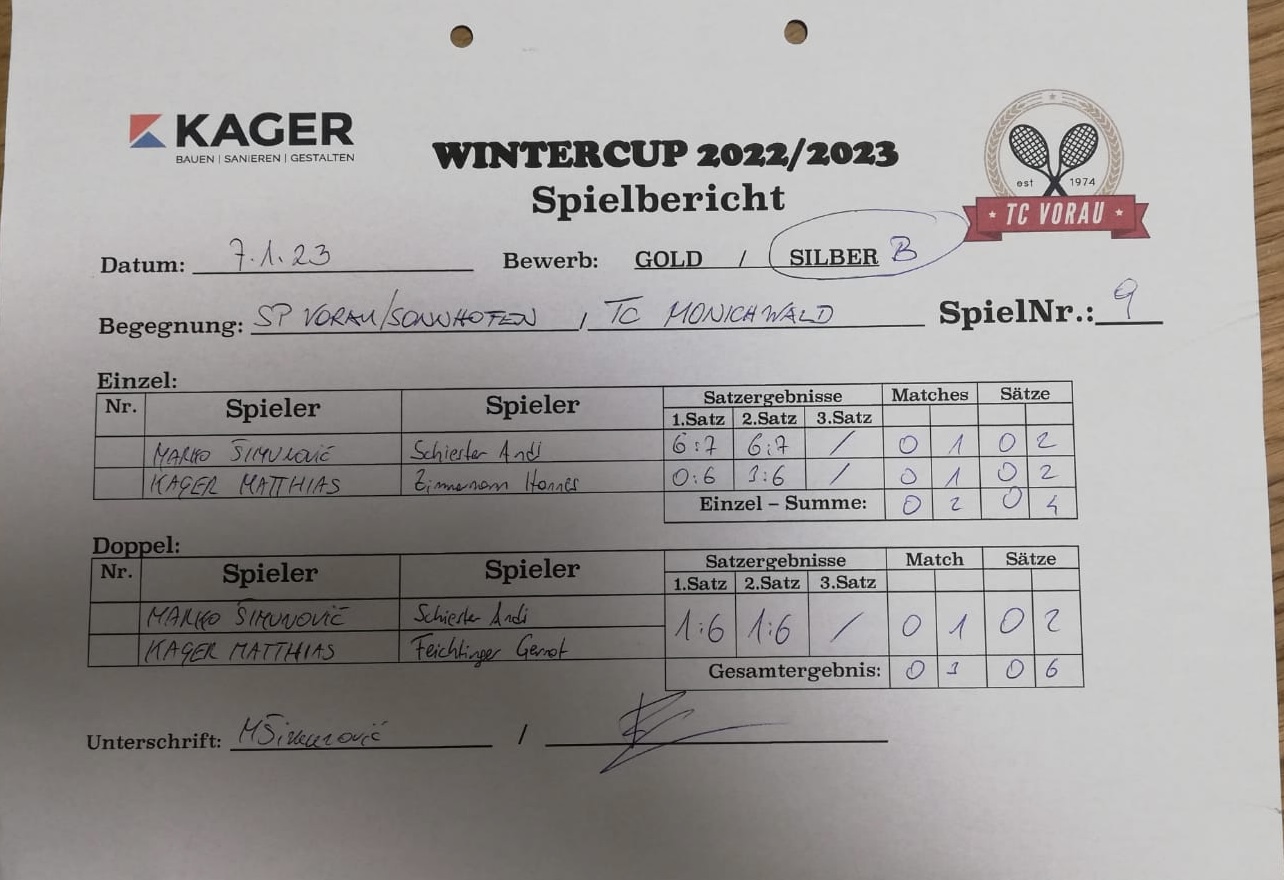 KAGER
BAUEN | SANIEREN | GESTALTEN
WINTERCUP 2022/2023
Spielbericht
est 1974
TC VORAU
Datum: 7.1.23 Bewerb: GOLD / SILBER B
Begegnung: SP VORAU/SONNHOFEN / TC MÖNICHWALD SpielNr.: 9
Einzel:
Nr. Spieler Spieler Satzergebnisse Matches Sätze
1.Satz 2.Satz 3.Satz
MARKO ŠIMUNOVIĆ Schiester Andi 6:7 6:7 / 0 1 0 2
KAGER MATTHIAS Hannes 0:6 1:6 / 0 1 0 2
Einzel – Summe: 0 2 0 4
Doppel:
Nr. Spieler Spieler Satzergebnisse Match Sätze
1.Satz 2.Satz 3.Satz
MARKO ŠIMUNOVIĆ Schiester Andi 1:6 1:6 / 0 1 0 2
KAGER MATTHIAS Feichtinger Gernot
Gesamtergebnis: 0 3 0 6
Unterschrift: MŠimunović /